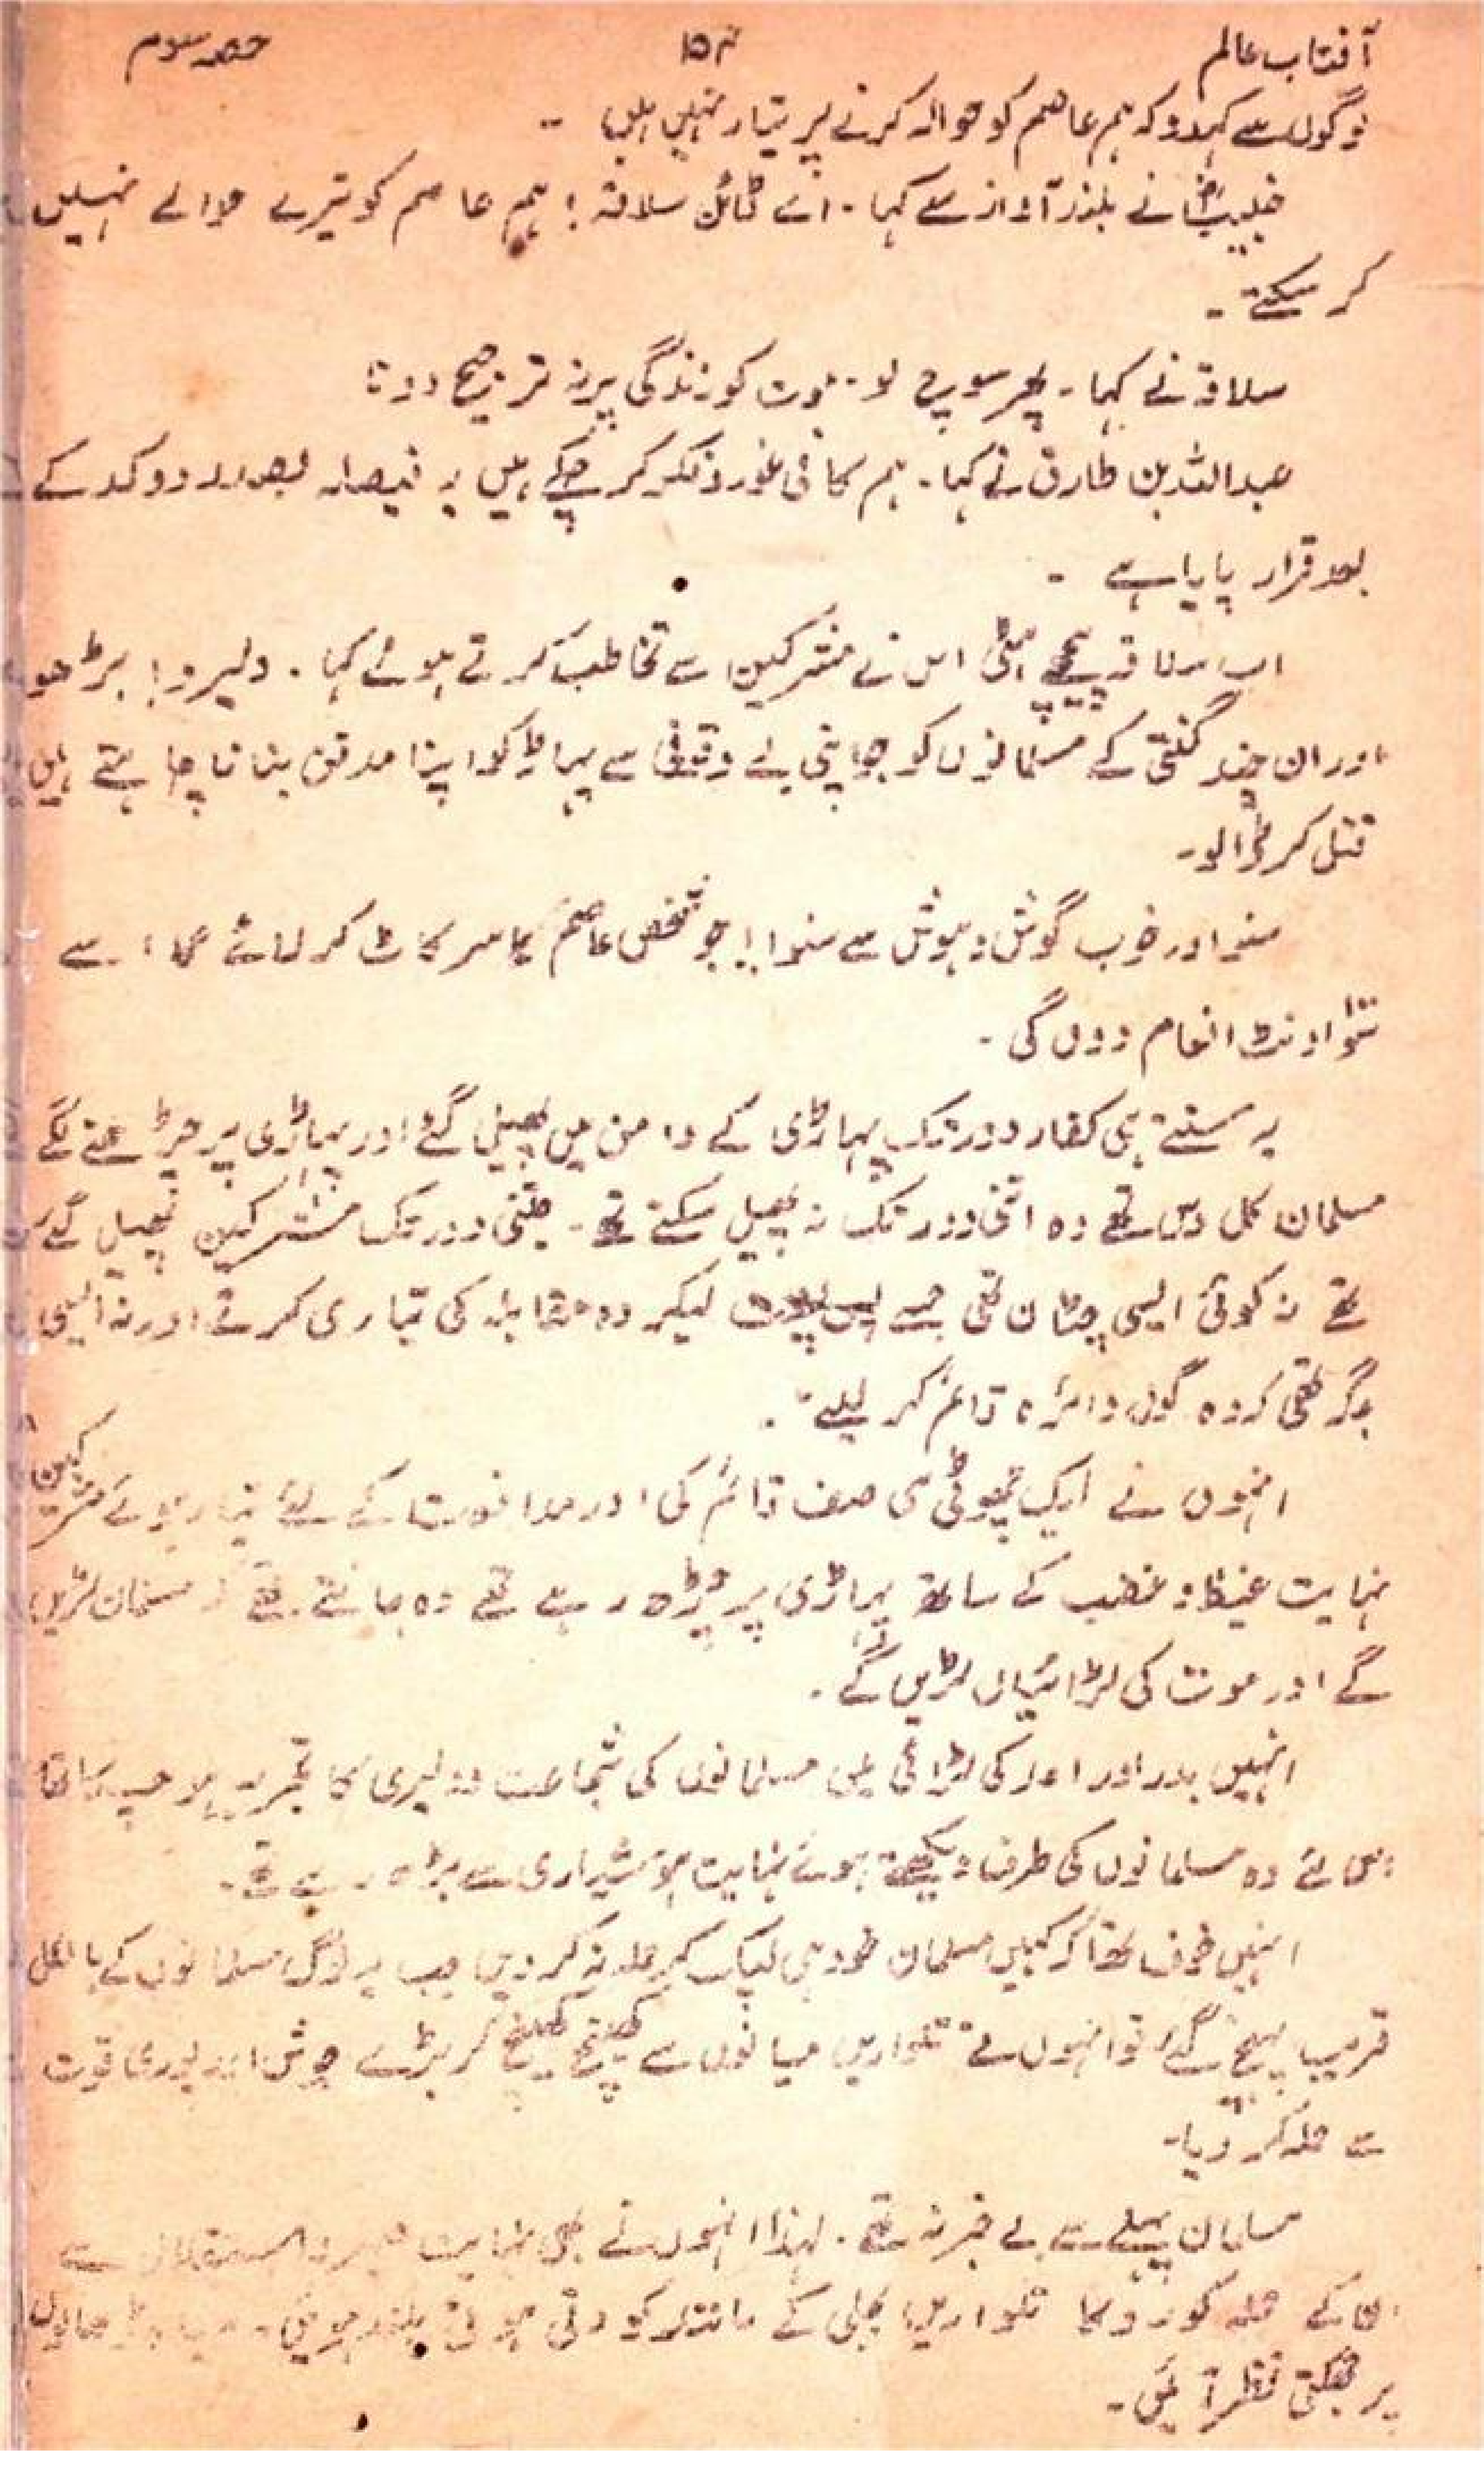 آفتاب عالم ۱۵۴ حصہ سوم
لوگوں سے کہدو کہ ہم عاصم کو حوالہ کرنے پر تیار نہیں ہیں ۔
خبیبؓ نے بلند آواز سے کہا ۔ اے سلافہ! ہم عاصم کو تیرے حوالے نہیں
کر سکتے ۔
سلافہ نے کہا ۔ پھر سوچ لو ۔ موت کو زندگی پر نہ ترجیح دو؟
عبداللہ بن طارق نے کہا ۔ ہم کافی غور و فکر کر چکے ہیں یہ فیصلہ بعد رد و کد کے
بعد قرار پایا ہے ۔
اب سلافہ پیچھے ہٹی اس نے مشرکین سے تخاطب کرتے ہوئے کہا ۔ دلیرو! بڑھو
اور ان چند گنتی کے مسلمانوں کو جو اپنی بے وقوفی سے پہاڑ کو اپنا مدفن بنانا چاہتے ہیں
قتل کر ڈالو۔
سنو اور خوب گوش و ہوش سے سنو! جو شخص عاصم کا سر کاٹ کر لائے گا اسے
سو اونٹ انعام دوں گی ۔
یہ سنتے ہی کفار دور تک پہاڑی کے دامن میں پھیل گئے اور پہاڑی پر چڑھنے لگے
مسلمان کل دس تھے وہ اتنی دور تک نہ پھیل سکتے تھے ۔ جتنی دور تک مشرکین پھیل گئے
تھے نہ کوئی ایسی چٹان تھی جسے پس پشت لیکر وہ مقابلہ کی تیاری کرتے اور نہ ایسی
جگہ تھی کہ وہ گول دائرہ قائم کر لیتے ۔
انہوں نے ایک چھوٹی سی صف قائم کی اور مدافعت کے لئے تیار ہوئے مشرکین
نہایت غیظ و غضب کے ساتھ پہاڑی پر چڑھ رہے تھے وہ جانتے تھے کہ مسلمان لڑیں
گے اور موت کی لڑائیاں لڑیں گے ۔
انہیں بدر اور احد کی لڑائی میں مسلمانوں کی شجاعت و دلیری کا تجربہ ہو چکا تھا
اس لئے وہ مسلمانوں کی طرف دیکھتے ہوئے نہایت ہوشیاری سے بڑھ رہے تھے ۔
انہیں خوف تھا کہ کہیں مسلمان خود ہی لپک کر حملہ نہ کر دیں جب یہ لوگ مسلمانوں کے بالکل
قریب پہنچ گئے تو انہوں نے تلواریں میانوں سے کھینچ کھینچ کر بڑے جوش اور پوری قوت
سے حملہ کر دیا ۔
مسلمان پہلے سے بے خبر نہ تھے ۔ لہذا انہوں نے بھی نہایت صبر و استقلال سے
ان کے حملہ کو روکا تلواریں بجلی کے مانند کوندتی ہوئی بلند ہوئیں
پر جھکتی نظر آئیں ۔